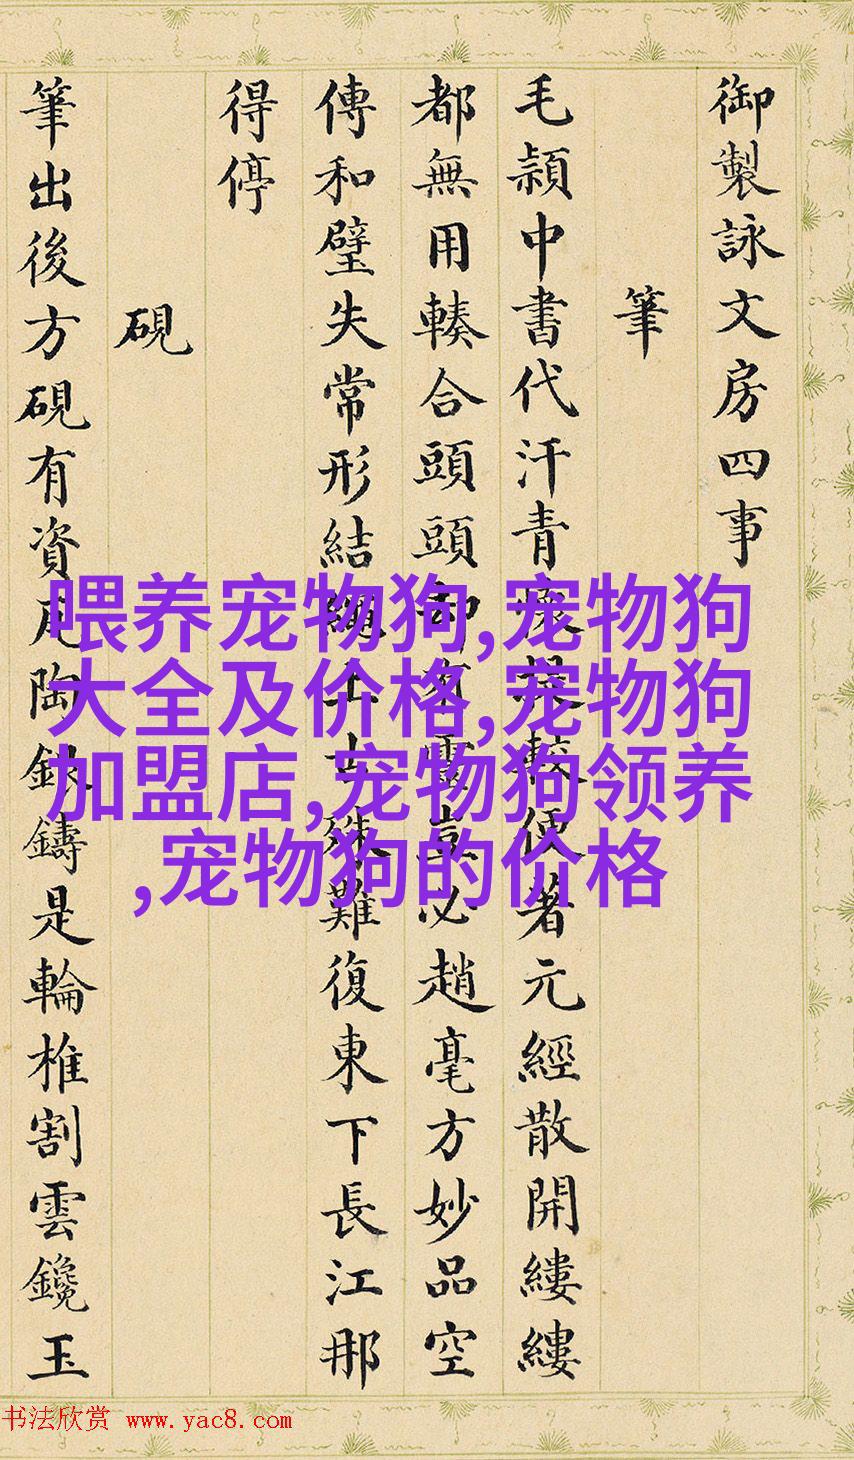 御製詠文房四事
筆
毛頴中書代汗青懷提較便著元經散開縷縷
都無用輳合頭頭却有靈豈必趙毫方妙品空
傳和璧失常形結繩上古殊難復東下長江那
得停
硯
筆出後方硯有資瓦陶銀鑄是輪椎割雲鑱玉
喂养宠物狗,宠物狗
大全及价格,宠物狗
加盟店,宠物狗领养
,宠物狗的价格
书法欣赏 www.yac8.com